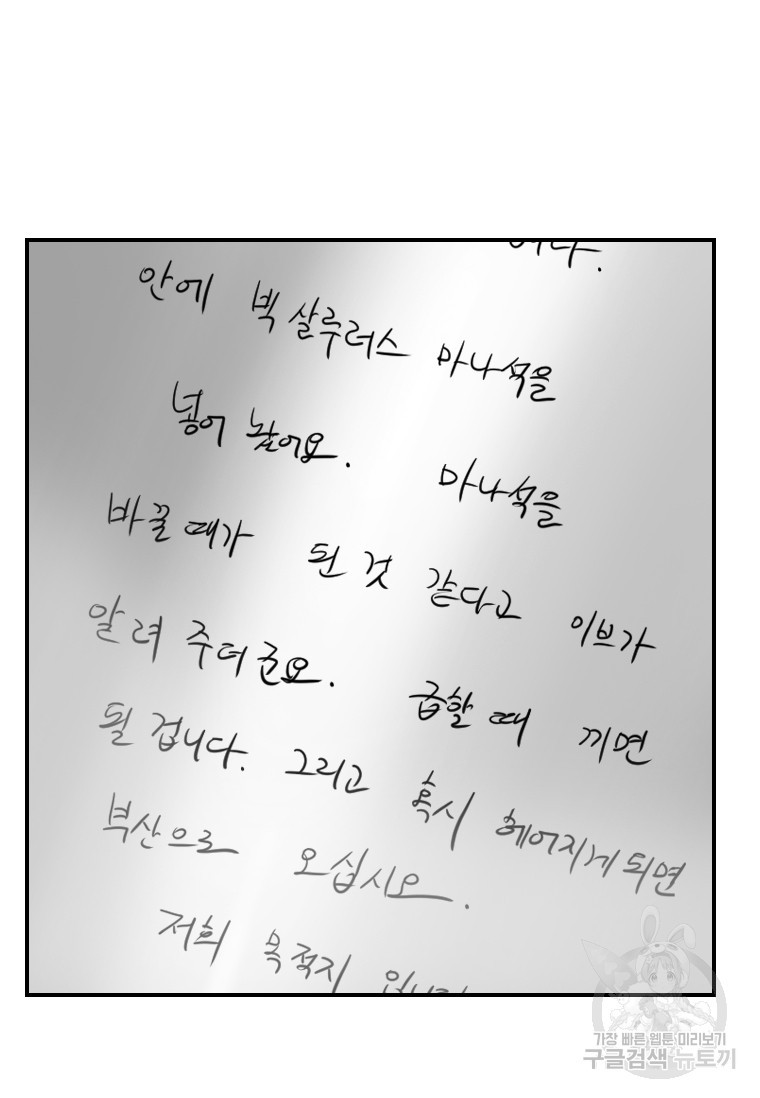 어다.
안에 빅 살루러스 마나석을
넣어 놨어요. 마나석을
바꿀 때가 된 것 같다고 이브가
알려 주더군요. 급할 때 끼면
될 겁니다. 그리고 혹시 헤어지게 되면
부산으로 오십시오.
저희 목적지 입니다
가장 빠른 웹툰 미리보기
구글검색 뉴토끼